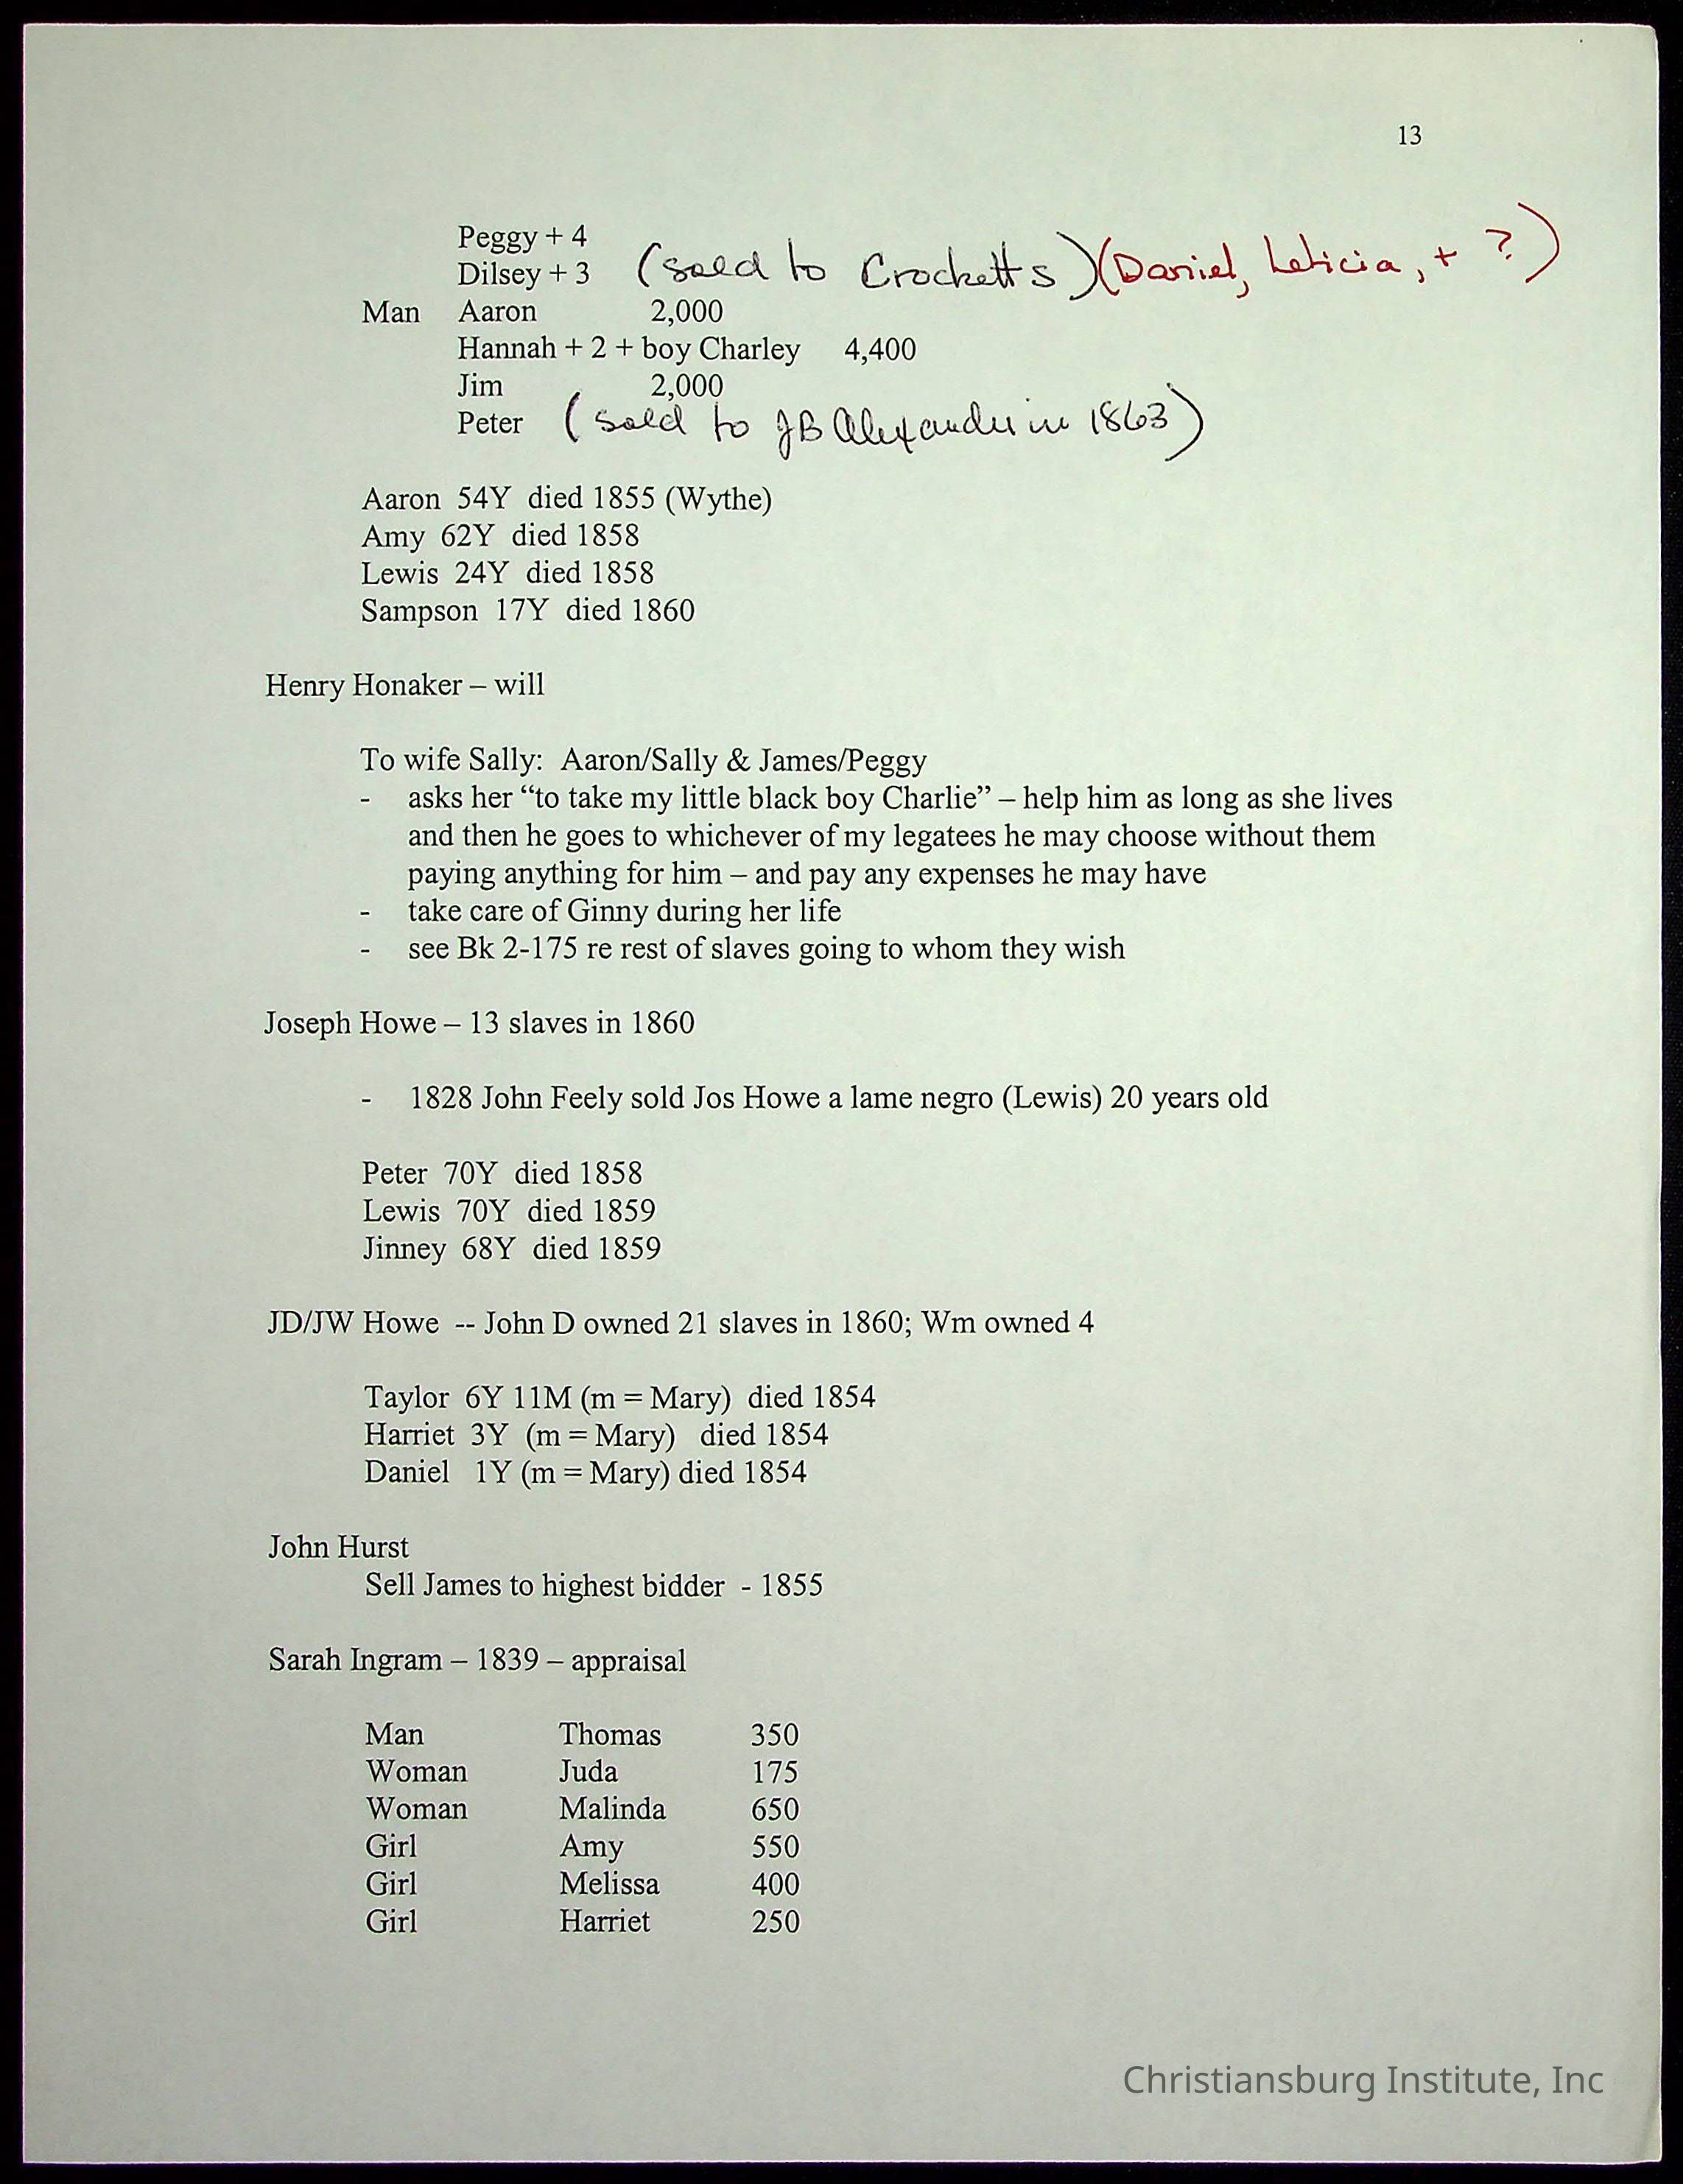 13
Peggy + 4
Dilsey + 3 (sold to Crocketts) (Daniel, Leticia, + ?)
Man Aaron 2,000
Hannah + 2 + boy Charley 4,400
Jim 2,000
Peter (sold to JB Alexander in 1863)
Aaron 54Y died 1855 (Wythe)
Amy 62Y died 1858
Lewis 24Y died 1858
Sampson 17Y died 1860
Henry Honaker – will
To wife Sally: Aaron/Sally & James/Peggy
- asks her “to take my little black boy Charlie” – help him as long as she lives
and then he goes to whichever of my legatees he may choose without them
paying anything for him – and pay any expenses he may have
- take care of Ginny during her life
- see Bk 2-175 re rest of slaves going to whom they wish
Joseph Howe – 13 slaves in 1860
- 1828 John Feely sold Jos Howe a lame negro (Lewis) 20 years old
Peter 70Y died 1858
Lewis 70Y died 1859
Jinney 68Y died 1859
JD/JW Howe -- John D owned 21 slaves in 1860; Wm owned 4
Taylor 6Y 11M (m = Mary) died 1854
Harriet 3Y (m = Mary) died 1854
Daniel 1Y (m = Mary) died 1854
John Hurst
Sell James to highest bidder - 1855
Sarah Ingram – 1839 – appraisal
Man Thomas 350
Woman Juda 175
Woman Malinda 650
Girl Amy 550
Girl Melissa 400
Girl Harriet 250
Christiansburg Institute, Inc